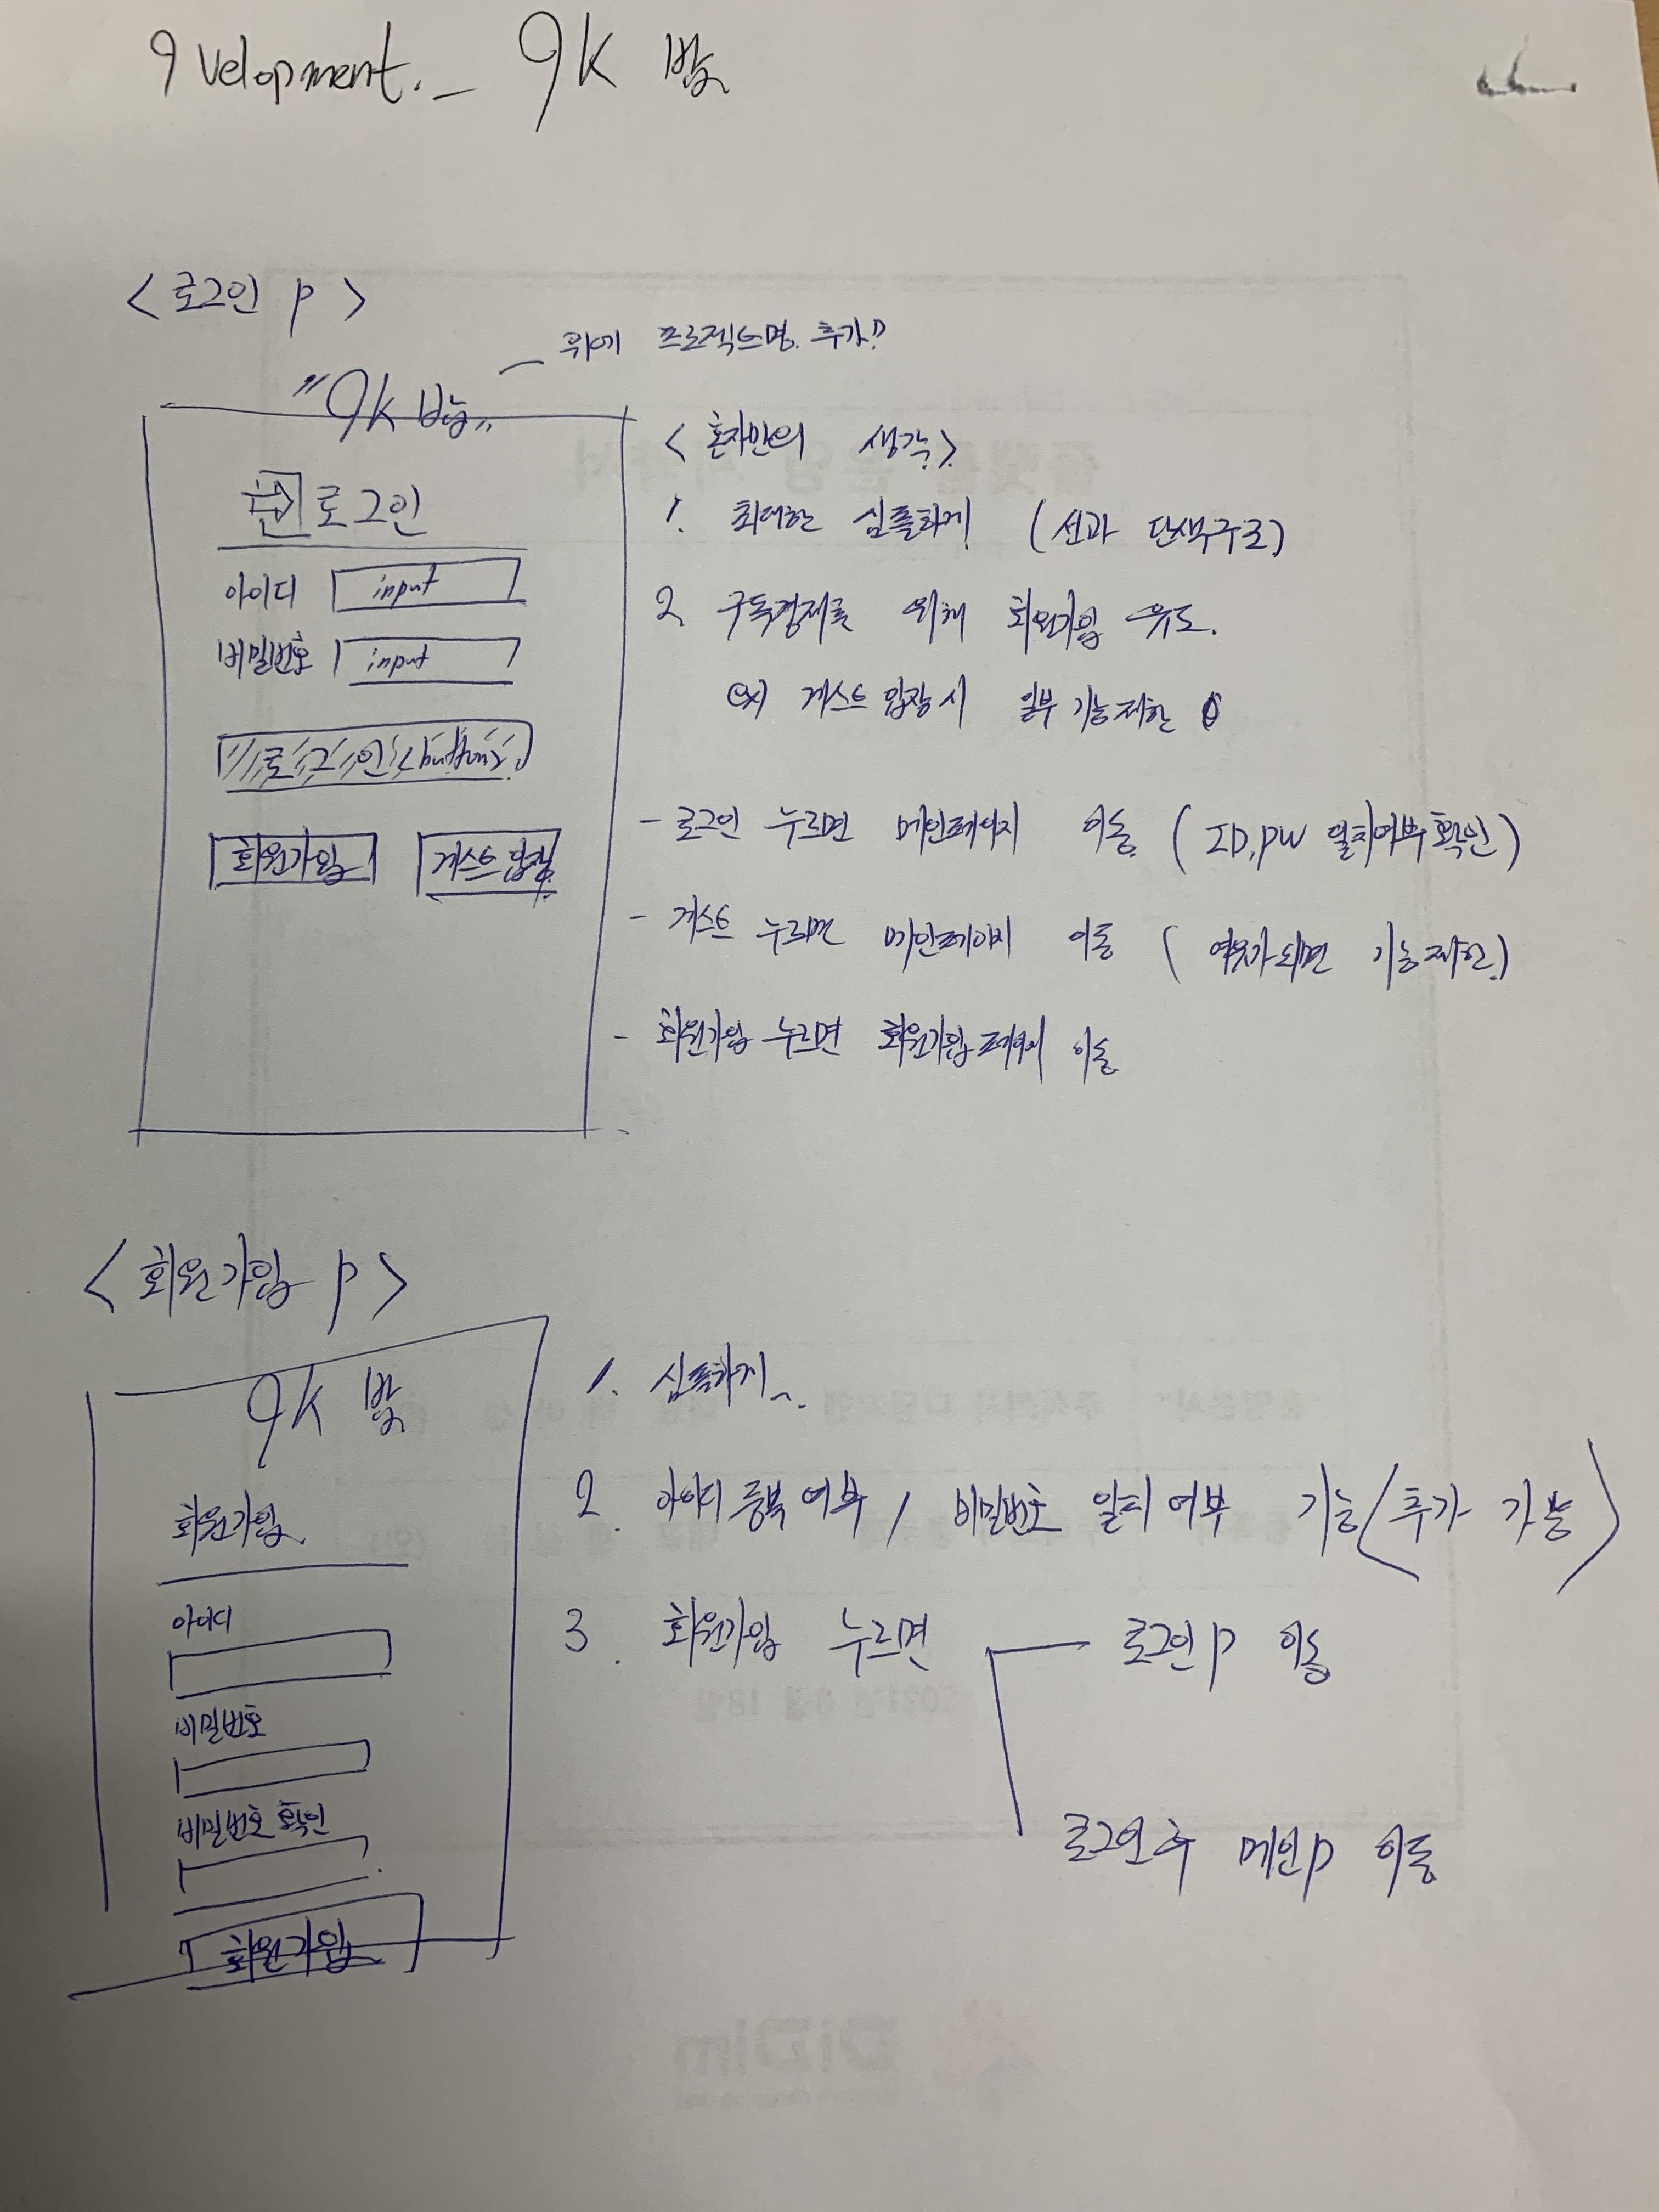 9velopment._ 9K 발
<로그인 p>
위에 프로젝트명. 추가?
"9K 발"
로그인
아이디 input
비밀번호 input
로그인<button>
회원가입 게스트입장
<혼자만의 생각>
1. 최대한 심플하게! (선과 단색구조)
2 구독경제를 위해 회원가입 유도.
ex) 게스트 입장 시 일부 기능제한
- 로그인 누르면 메인페이지 이동. (ID,PW 일치여부확인)
- 게스트 누르면 메인페이지 이동 (여유가되면 기능제한.)
- 회원가입 누르면 회원가입페이지 이동
<회원가입 p>
9K 발
회원가입.
아이디
비밀번호
비밀번호 확인
회원가입
1. 심플하게~.
2. 아이디 중복여부 / 비밀번호 일치여부 기능<추가 가능>
3. 회원가입 누르면 로그인 p 이동
로그인 후 메인p 이동
2021년 6월 18일
DiDim